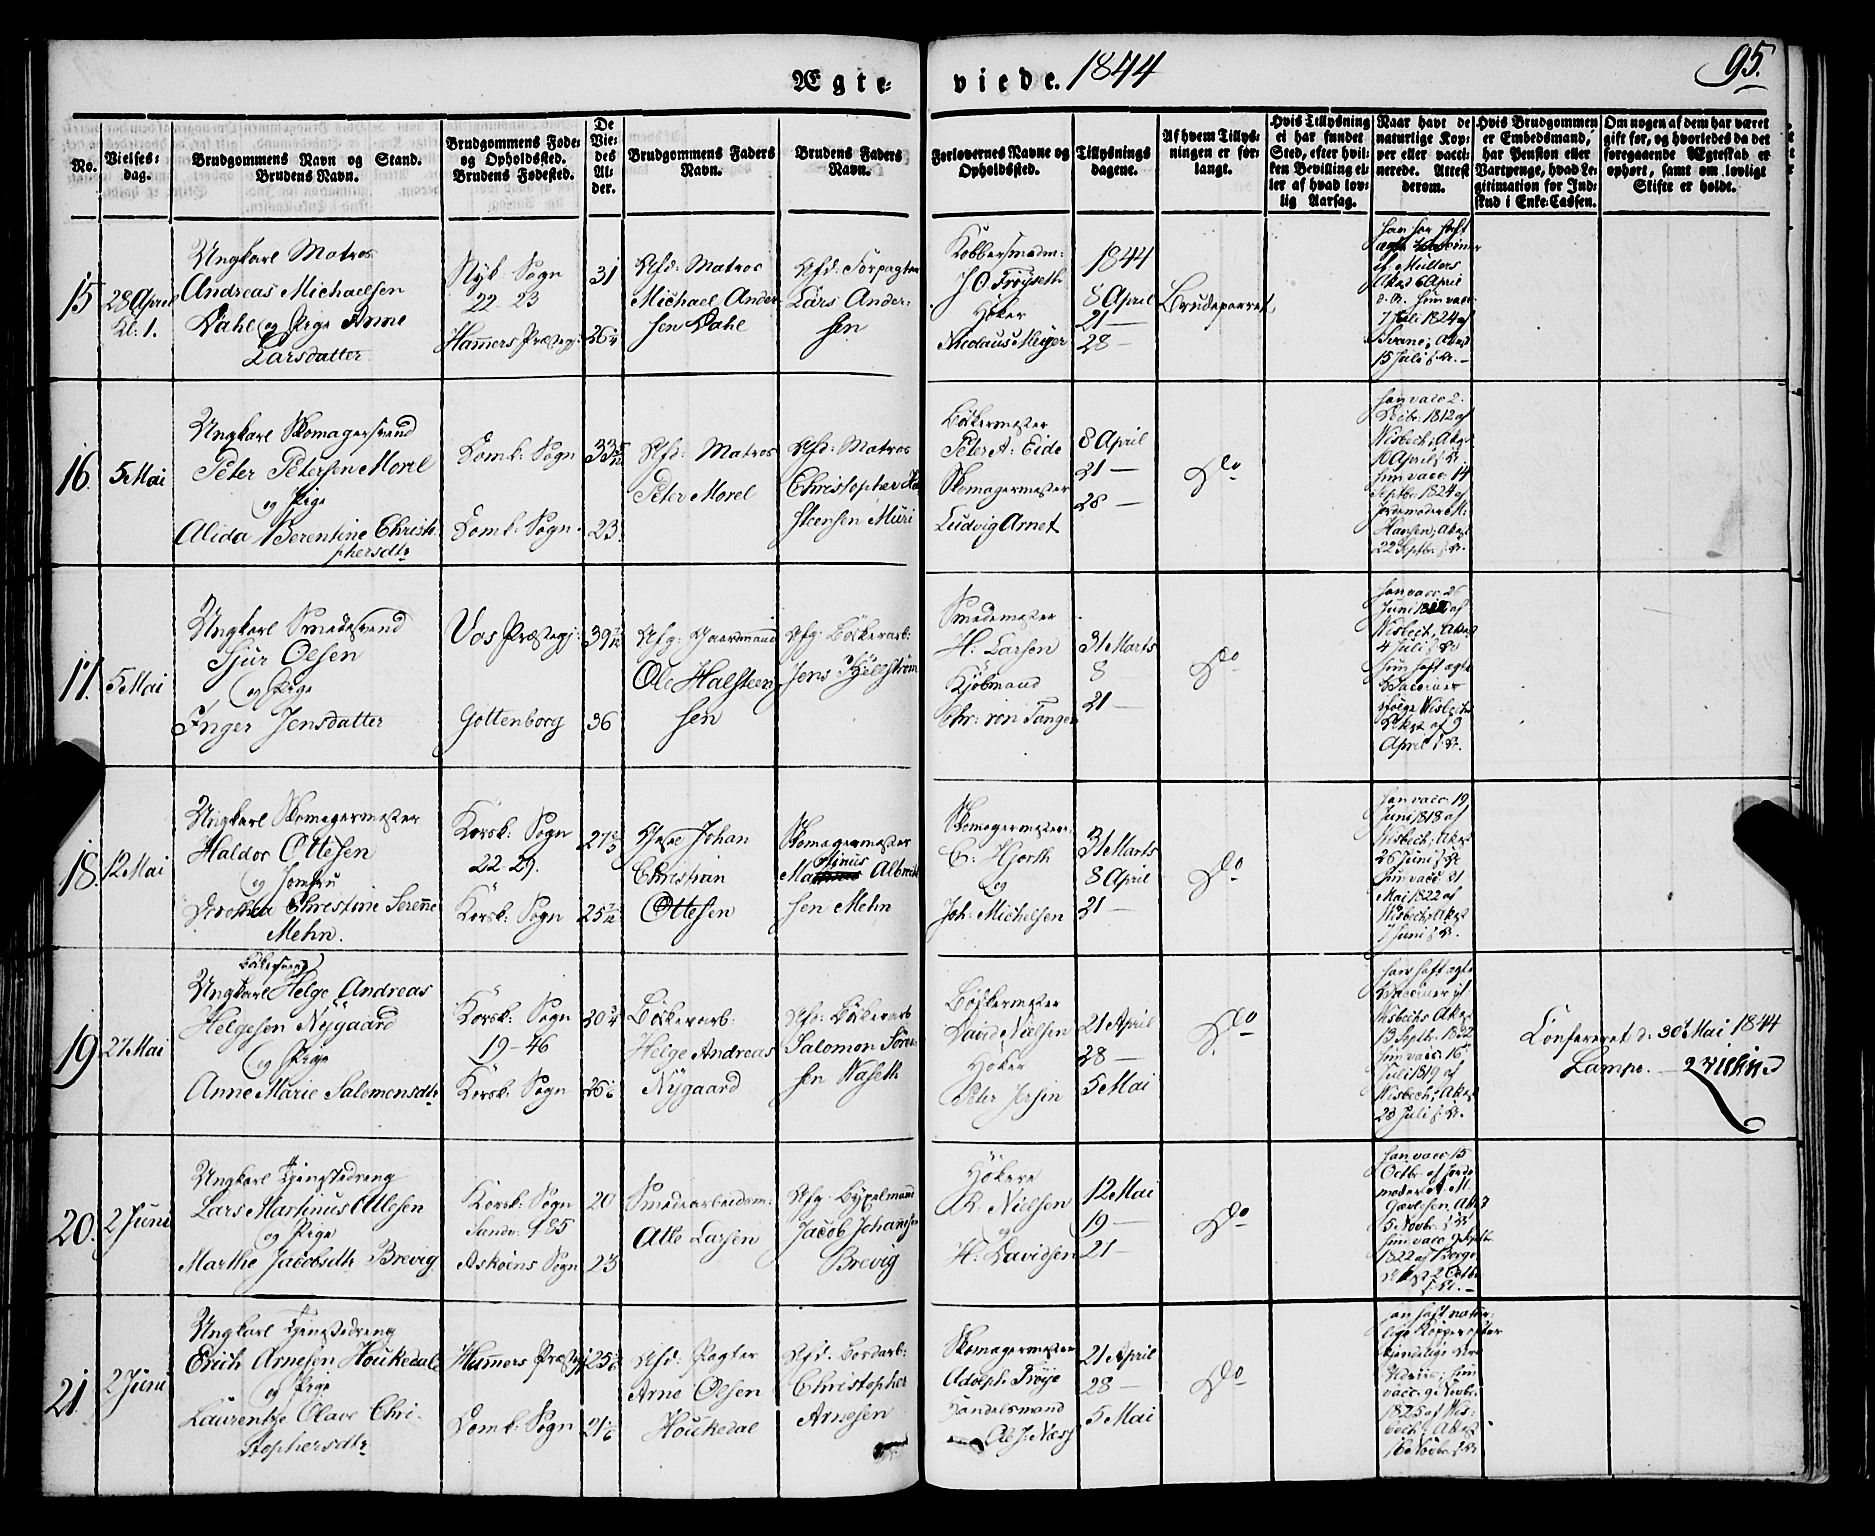 Ægte-
viede. 1844
95.
No.
Vielses-
dag.
Brudgommens Navn og Stand.
Brudens Navn.
Brudgommens Føde-
og Opholdssted.
Brudens Fødested.
De
Vie-
des
Al-
der.
Brudgommens Faders
Navn.
Brudens Faders
Navn.
Forlovernes Navne og
Opholdssted.
Tillysnings
dagene.
Af hvem Tillys-
ningen er for-
langt.
Hvis Tillysning
ei har fundet
Sted, efter hvil-
ken Bevilling el-
ler af hvad lov-
lig Aarsag.
Naar havt de
naturlige Kop-
per eller vacci-
nerede. Attest
derom.
Hvis Brudgommen
er Embedsmand,
har Pension eller
Vartpenge, hvad Le-
gitimation for Ind-
skud i Enke-Cassen.
Om nogen af dem har været
gift før, og hvorledes da det
foregaaende Ægteskab er
ophørt, samt om lovligt
Skifte er holdt.
15
28 April
Kl. 1.
Ungkarl Matros
Andreas Michaelsen
Dahl og Pige Anne
Larsdatter
Nyk: Sogn
22. 23
Hamers Præstegj:
31
26¼
Afd: Matros
Michael Ander-
sen Dahl
Afd: Forpagter
Lars Ander-
sen
Kobbersmedm:
J O Frøyseth
Høker
Nicolaus Meyer
1844
8 April
21 —
28 —
Brudeparret
6 April
7 Juli 1824 af
15 Juli s: A. —
16.
5 Mai
Ungkarl Skomagersvend
Peter Petersen Morel
og Pige
Alida Berentine Christo-
phersdtr
Domk: Sogn
Domk: Sogn.
33 5/12
23
Afd: Matros
Peter Morel
Afd: Matros
Christopher
Steensen Müri
Bødkermester
Peter A: Eide
Skomagermester
Ludvig Arnet
8 April
21 —
28 —
Do
han vacc 2.
Decbr. 1812 af
Wisbech, Akst
10 April s: A.
hun vacc. 14
Septbr. 1824 af
Jordemoder M.
Hansen, Akst
22 Septbr. s: A.
17.
5 Mai
Ungkarl Smedesvend
Sjur Olsen
og Pige
Inger Jensdatter
Vos Præstegj:
Gottenborg
36
Afg: Gaardmand
Ole Halsteen-
sen
Afg: Bødkerarb:
Jens Kjellstrøm
Smedemester
H: Larsen
Kjøbmand
Chr: von Tangen
31 Marts
8
21 —
Do
han vacc. 26
Juni
Wisbech, Akst
4 Juli s: A.
hun haft ægte
Vacciner
ifølge Wisbechs
Akst af 9
April s: A.
18.
12 Mai
Ungkarl Skomagermester
Haldor Ottesen
og Jomfru
Dorothea Christine Serenne
Mehn.
Korsk: Sogn
22. 29.
Korsk: Sogn
Johan
Christian
Ottesen
Skomagermester
Martinus Albricht-
sen Mehn
Skomagermestere
C: Hjorth
og
Joh: Michelsen
31 Marts
8 April
21 —
Do
han vacc. 19
Juni 1818 af
Wisbech, Akst
26 Juni s: A.
hun vacc. 31
Mai 1822 af
Wisbech, Akst
7 Juni s: A.
19
27 Mai
Bødkersvend
Ungkarl Helge Andreas
Helgesen Nygaard
og Pige
Anne Marie Salomonsdtr
Korsk: Sogn
19-46
Korsk: Sogn
Bødkerarb:
Helge Andreas
Nygaard
Afd: Bødkerarb
Salomon Sören-
sen Waseth
Bødkermester
David Nielsen
Høker
Peter Jersin
21 April
28 —
5 Mai
Do
han haft ægte
Vacciner if
Wisbechs Akst
13 Septbr. 1832
hun vacc. 16
Juli 1819 af
Wisbech, Akst
23 Juli s: A.
Confereret d: 30te Mai 1844
Lampe.
20.
2 Juni
Ungkarl Tjenestedreng
Lars Martinus Attesen
og Pige
Marthe Jacobsdtr Brevig
Korsk: Sogn
Sandv: 485
Askøens Sogn
20
Smedearbeidsm:
Atte Larsen
Jacob Johannesen
Brevig
Høkere
R: Nielsen
og
H: Davidsen
12 Mai
19 —
21 —
Do
han vacc. 15
Octbr. af Jorde
moder M.
5 Novbr. s: A.
hun vacc. 9 Septbr
1822 af Borge
Akst 2 Octbr
s: A. —
21
2 Juni
Ungkarl Tjenestedreng
Erich Arnesen Houkedal
og Pige
Laurentze Olave Chri-
stophersdtr
Hamers Præstegj
Domk: Sogn
Afd: Pagter
Arne Olsen
Houkedal
Afd: Bordarb:
Christopher
Arnesen
Skomagermester
Adolph Frøye
Handelsmand
Ole J: Næss
21 April
28 —
5 Mai
Do
han haft natur-
lige Kopper efter
vacc. 9 Novbr.
1825 af Wis-
bech, Akst
16 Novbr. s: A.